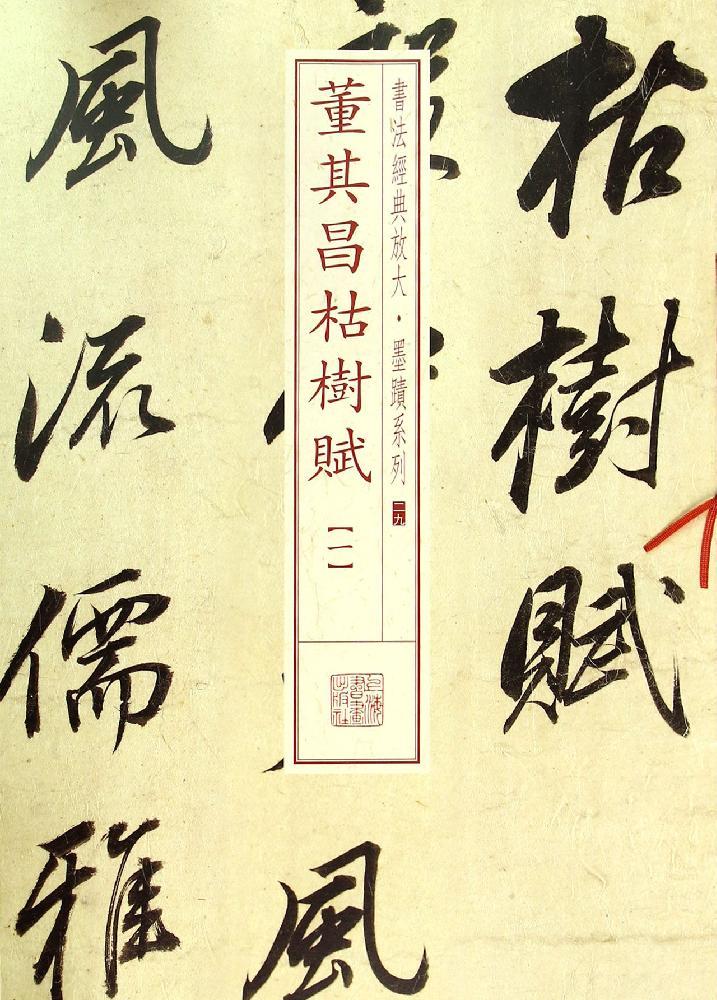 枯樹賦
書法經典放大·墨蹟系列
二九
董其昌枯樹賦
【一】
上海書畫出版社
風
風流儒雅